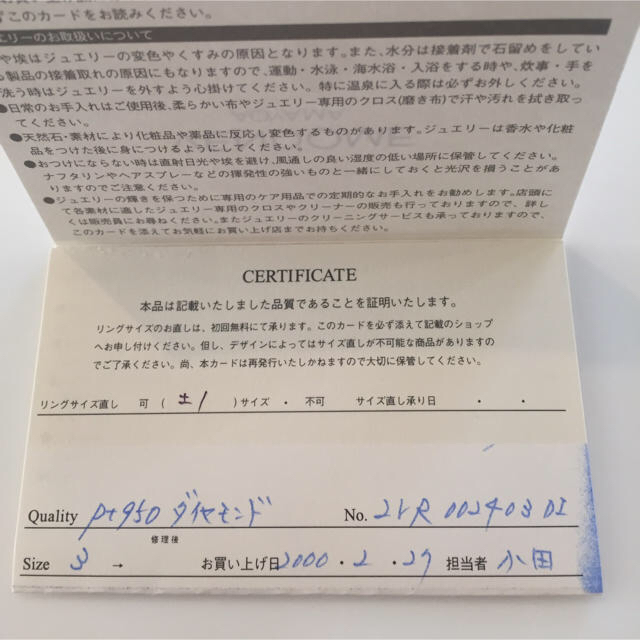 ずこのカードをお読みください。
エリーのお取扱いについて
や埃はジュエリーの変色やくすみの原因となります。また、水分は接着剤で石留めをしてい
る製品の接着取れの原因にもなりますので、運動・水泳・海水浴・入浴をする時や、炊事・手を
洗う時はジュエリーを外すよう心掛けてください。特に温泉に入る際は必ずお外しください。
●日常のお手入れはご使用後、柔らかい布やジュエリー専用のクロス(磨き布)で汗や汚れを拭き取っ
てください。
●天然石・素材により化粧品や薬品に反応し変色するものがあります。ジュエリーは香水や化粧
品をつけた後に身につけるようにしてください。
●おつけにならない時は直射日光や埃を避け、風通しの良い湿度の低い場所に保管してください。
ナフタリンやヘアスプレーなどの揮発性の強いものと一緒にしておくと光沢を損うことがあ
りますのでご注意ください。
●ジュエリーの輝きを保つために専用のケア用品での定期的なお手入れをお勧めします。店頭に
て各素材に適したジュエリー専用のクロスやクリーナーの販売も行っておりますので、詳し
くは販売員にお尋ねください。またジュエリーのクリーニングサービスも承っておりますので、
このカードを添えてお気軽にお買い上げ店までお持ちください。
CERTIFICATE
本品は記載いたしました品質であることを証明いたします。
リングサイズのお直しは、初回無料にて承ります。このカードを必ず添えて記載のショップ
へお申し付けください。但し、デザインによってはサイズ直しが不可能な商品がありますの
でご了承ください。尚、本カードは再発行いたしかねますので大切に保管してください。
リングサイズ直し 可 ( ±1 ) サイズ ・ 不可 サイズ直し承り日 ・ ・
Quality Pt950 ダイヤモンド No.
修理後
Size 3 → お買い上げ日 2000 ・ 2 ・ 27 担当者 小田